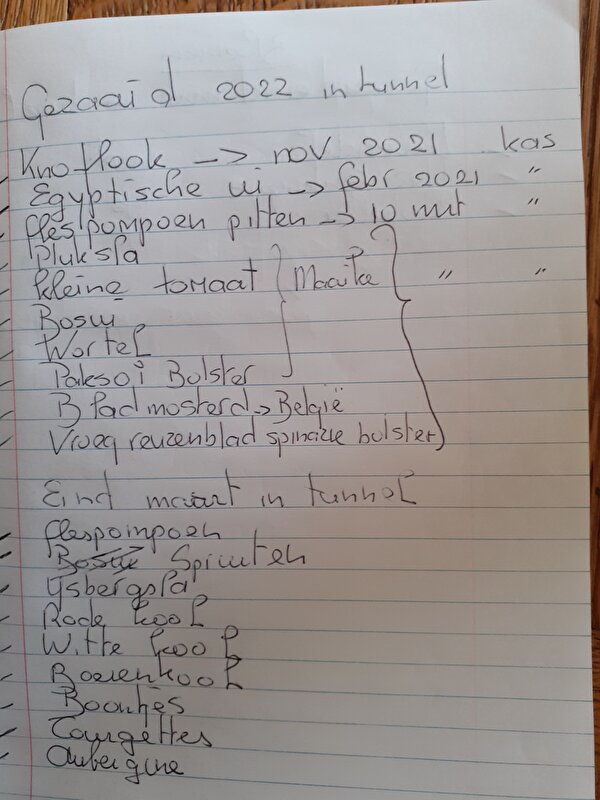 Gezaaid 2022 in tunnel
Knoflook -> nov 2021 kas
Egyptische ui -> febr 2021 "
flespompoen pitten -> 10 mrt "
Pluksla
kleine tomaat } Maaike } " "
Bosui
Wortel
Paksoi Bolster
Bladmosterd -> België
Vroeg reuzenblad spinazie bolster
Eind maart in tunnel
flespompoen
Bosui Spruiten
Ysbergsla
Rode kool
Witte kool
Boerenkool
Boontjes
Courgettes
Aubergine